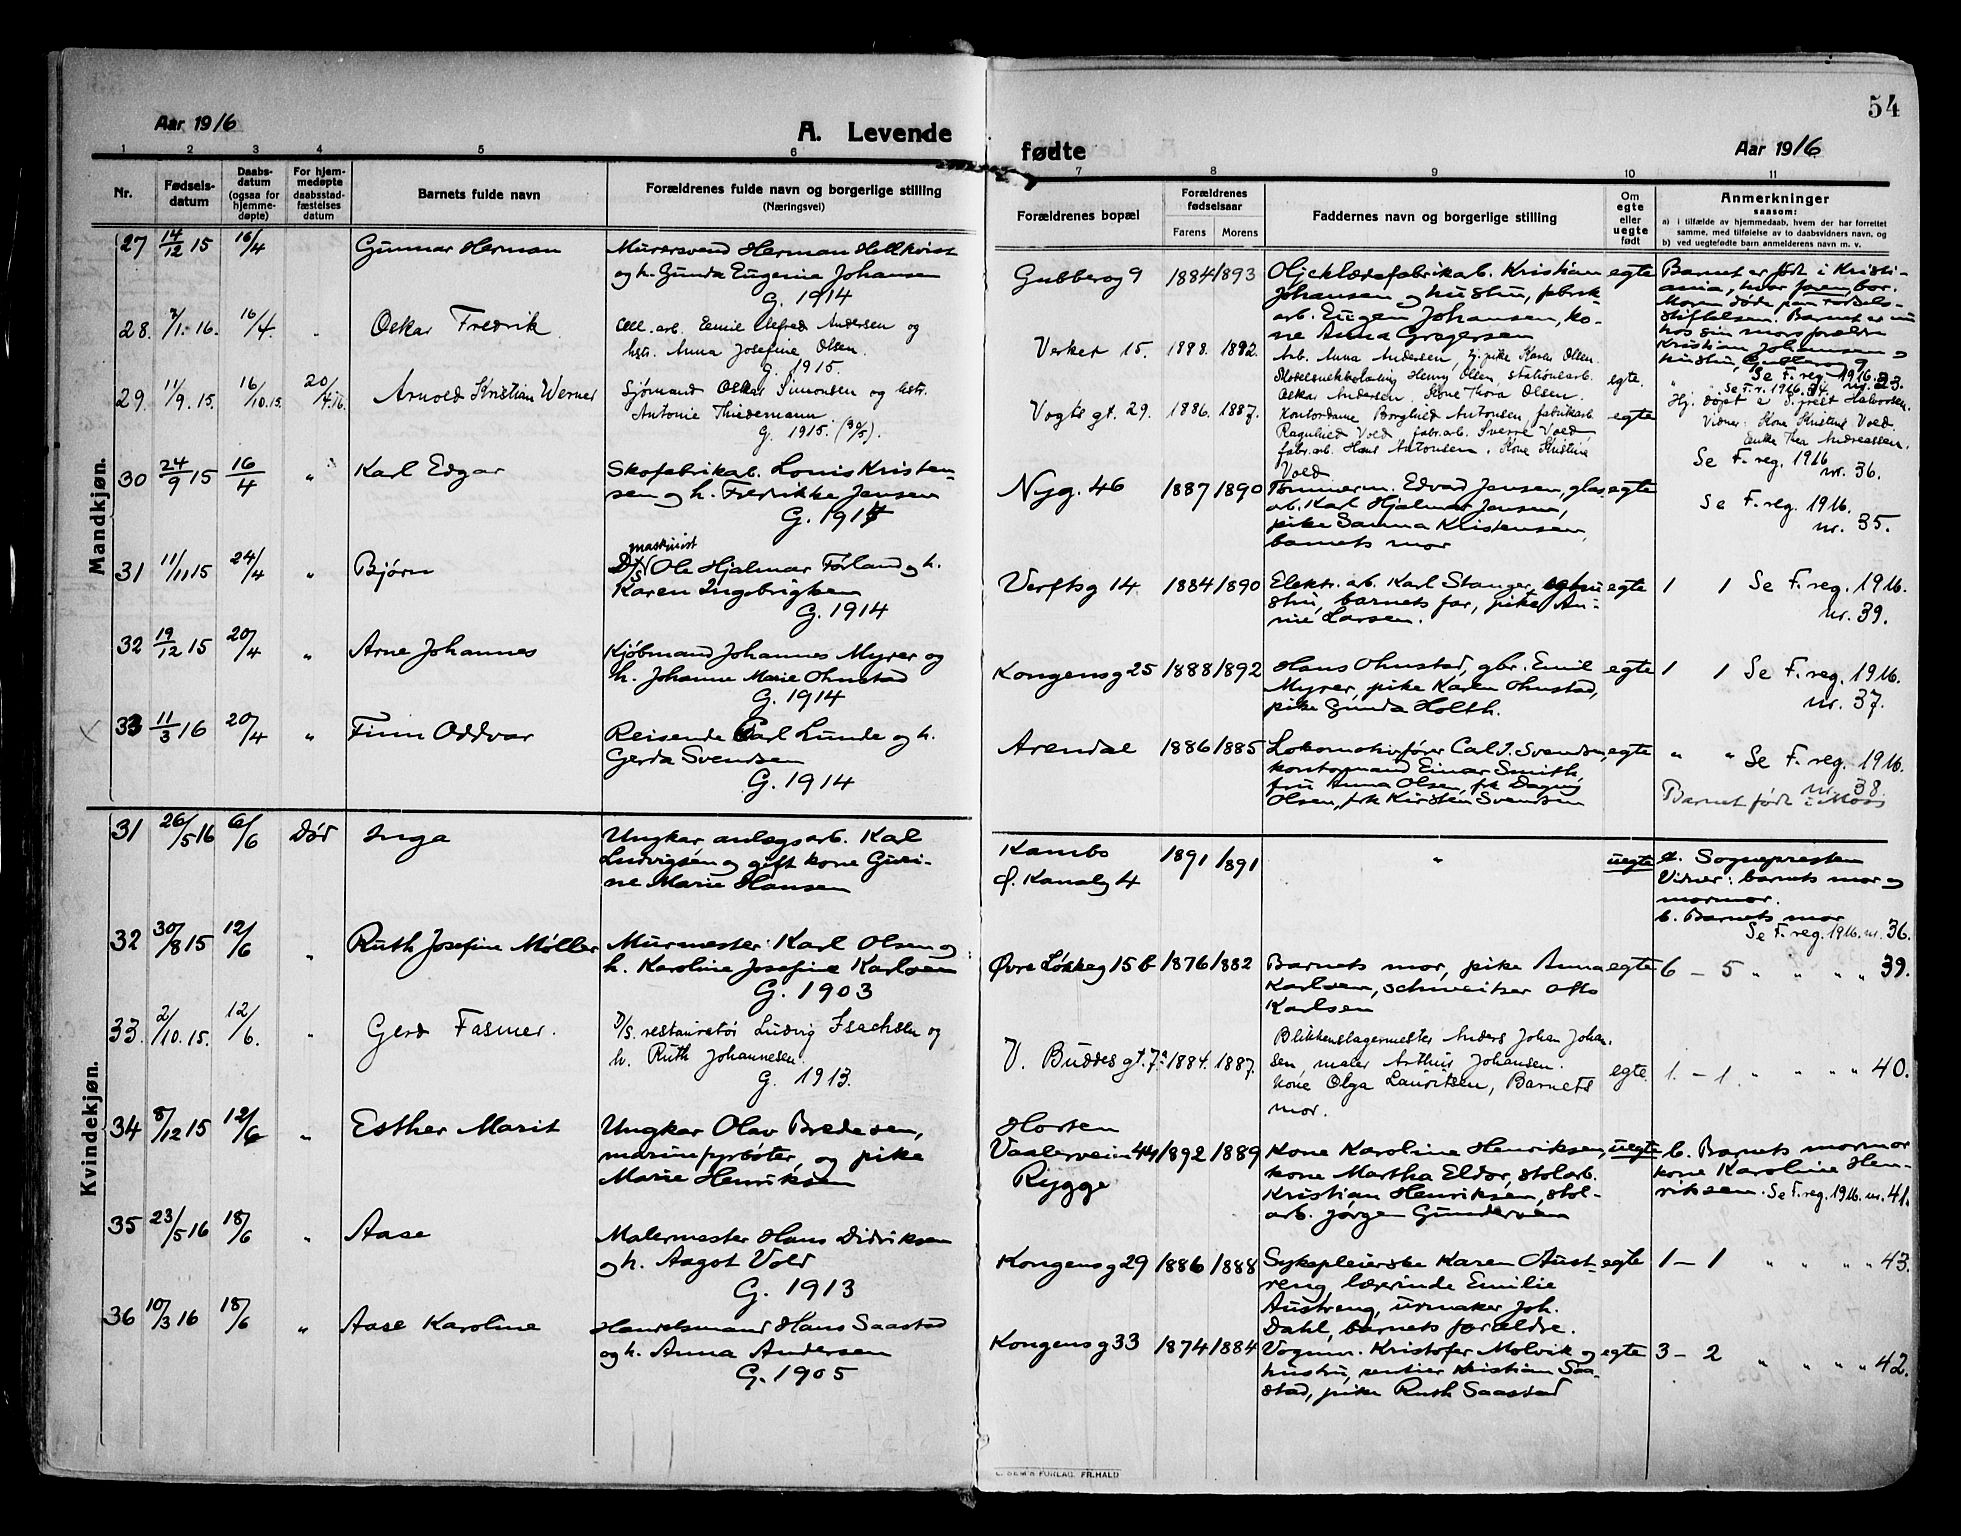 54
Aar 1916
A. Levende
fødte
Aar 1916
1 2 3 4 5 6 7 8 9 10 11
Nr.
Fødsels-
datum
Daabs-
datum
(ogsaa for
hjemme-
døpte)
For hjem-
medøpte
daabsstad-
fæstelses
datum
Barnets fulde navn
Forældrenes fulde navn og borgerlige stilling
(Næringsvei)
Forældrenes bopæl
Forældrenes
fødselsaar
Farens Morens
Faddernes navn og borgerlige stilling
Om
egte
eller
uegte
født
Anmerkninger
saasom:
a) i tilfælde av hjemmedaab, hvem der har forrettet
samme, med tilføielse av to daabsvidners navn, og
b) ved uegtefødte barn anmelderens navn m. v.
Mandkjøn.
27 14/12 15 16/4 Gunnar Herman
Murersvend Herman Hellkvist
og h. Gunda Eugenie Johansen
G. 1914
Gubberog 9 1884 1893
Oljeklædefabrikarb. Kristian
Johansen og hustru, fabrik-
arb. Eugen Johansen, ko-
ne Anna Gragersen
egte
Barnet er født i Kristi-
ania, hvor faren bor.
Moren døde paa Fødsels-
stiftelsen. Barnet er nu
hos sin mors forældre
Kristian Johansen og
hustru, 9
Se F. reg. 1916. nr. 23.
28. 2/1. 16. 16/4. " Oskar Fredrik
Cell. arb. Emil Alfred Andersen og
hstr. Anna Josefine Olsen.
G. 1915.
Verket 15. 1888. 1892.
Arb. Anna Andersen, tj. pike Karen Olsen.
Henry Olsen, stationsarb.
Oskar Andersen. Kone Thora Olsen.
egte.
" " Se F. r. 1916. 34.
29. 11/9. 15. 16/10.15. 20/4.16. Arnold Kristian Werner
Sjømand Oskar Simonsen og hstr.
Antonie Thiedemann
G. 1915. (30/5).
Vogts gt. 29. 1886. 1887.
Kontordame Borghild Antonsen, fabrikarb.
Ragnhild Vold, fabr.arb. Sverre Vold,
fabr.arb. Hans Antonsen. Kone Kristine
Vold
egte
Hj. døpt af S. prest Halvorsen.
Vidner: Kone Kristine Vold.
Enke Thea Andreassen.
Se F. reg. 1916
nr. 36.
30 24/9 15 16/4 " Karl Edgar
Skofabrikarb. Louis Kristen-
sen og h. Fredrikke Jensen
G. 1914
Nyg. 46 1887 1890
Tømmerm. Edvard Jensen, glas-
arb. Karl Hjalmar Jensen,
pike Sanna Kristensen,
barnets mor
egte
Se F. reg. 1916.
nr. 35.
31 11/11 15 24/4 " Bjørn
maskinist
D/S Ole Hjalmar Førland og h.
Karen Ingebrigtsen
G. 1914
Verftsg 14 1884 1890
Elektr. arb. Karl Stanger og hu-
stru, barnets far, pike An-
nie Larsen.
egte 1 1 Se F. reg. 1916.
nr. 39.
32 19/12 15 20/4 " Arne Johannes
Kjøbmand Johannes Myrer og
h. Johanne Marie Ohnstad
G. 1914
Kongensg 25 1888 1892
Hans Ohnstad, gbr. Emil
Myrer, pike Karen Ohnstad,
pike Gunda Holth.
egte 1 1 Se F. reg. 1916.
nr. 37.
33 11/3 16 20/4 " Finn Oddvar
Reisende Carl Lunde og h.
Gerda Svendsen
G. 1914
Arendal 1886 1885
Lokomotivfører Carl J. Svendsen,
kontormand Einar Smith,
fru Anna Olsen, frk Dagny
Olsen, frk Kirsten Svendsen
egte " " Se F. reg. 1916.
nr. 38.
Barnet født i Moss
Kvindekjøn.
31 26/5 16 6/6 Død Inga
Ungkar, anlægsarb. Karl
Ludvigsen og gift kone Guri-
ne Marie Hansen
Kambo
f. Kanalg 4
1891 1891
"
uegte
a. Sognepresten
Vidner: barnets mor og
mormor.
b. Barnets mor
Se F. reg. 1916. nr. 36.
32 30/8 15 12/6 " Ruth Josefine Møller
Murmester Karl Olsen og
h. Karoline Josefine Karlsen
G. 1903
Øvre Løkkeg 15 b 1876 1882
Barnets mor, pike Anna
Karlsen, schweitser Otto
Karlsen
egte 6 – 5 " " " 39.
33. 2/10. 15. 12/6. " Gerd Fasmer.
D/S. restauratør Ludvig Isachsen og
h. Ruth Johannesen.
G. 1913.
V. Buddes gt. 7a 1884. 1887.
Blikkenslagermester Anders Johan Johan-
sen, maler Arthur Johansen.
Kone Olga Lauritsen, Barnets
mor.
egte. 1. – 1. " " " " 40.
34 8/12 15 12/6 " Esther Marit
Ungkar Olav Bredesen,
marinefyrbøter, og pike
Marie Henriksen
Horten
Vaalerveien 44
Rygge
1892 1889
Kone Karoline Henriksen,
kone Martha Eldor, stolarb.
Kristian Henriksen, stol-
arb. Jørgen Gundersen
uegte
b. Barnets mormor
kone Karoline Hen-
riksen. Se F. reg. 1916. nr. 41.
35 23/5 16 18/6 " Aase
Malermester Hans Didriksen
og h. Aagot Vold
G. 1913
Kongensg 29 1886 1888
Sykepleierske Karen Aust-
reng, lærerinde Emilie
Austreng, urmaker Joh.
Dahl, barnets forældre.
egte 1 – 1 " " " " 43.
36 10/3 16 18/6 " Aase Karoline
Handelsmand Hans Saastad
og h. Anna Andersen
G. 1905
Kongensg 33 1874 1884
Vognm. Kristofer Molvik og
hustru, rentier Kristian Saa-
stad, pike Ruth Saastad
egte 3 – 2 " " " " 42.
SEM'S FORLAG. FR.HALD